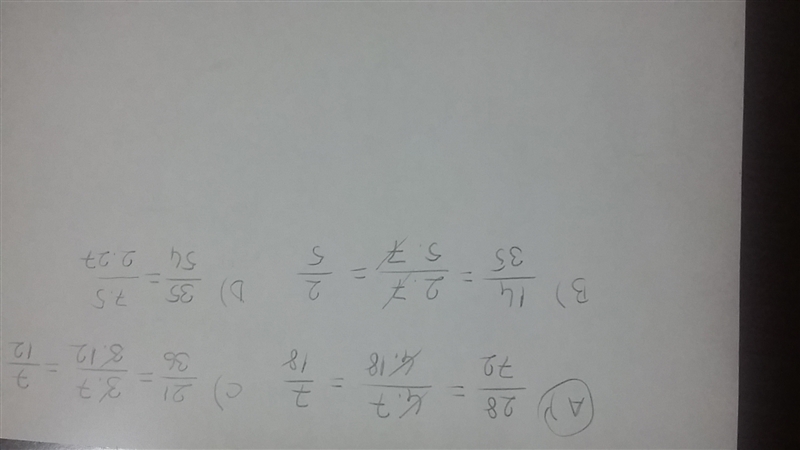 A) 28/72 = 4.7/4.18 = 7/18 C) 21/36 = 3.7/3.12 = 7/12
B) 14/35 = 2.7/5.7 = 2/5 D) 35/54 = 7.5/2.27